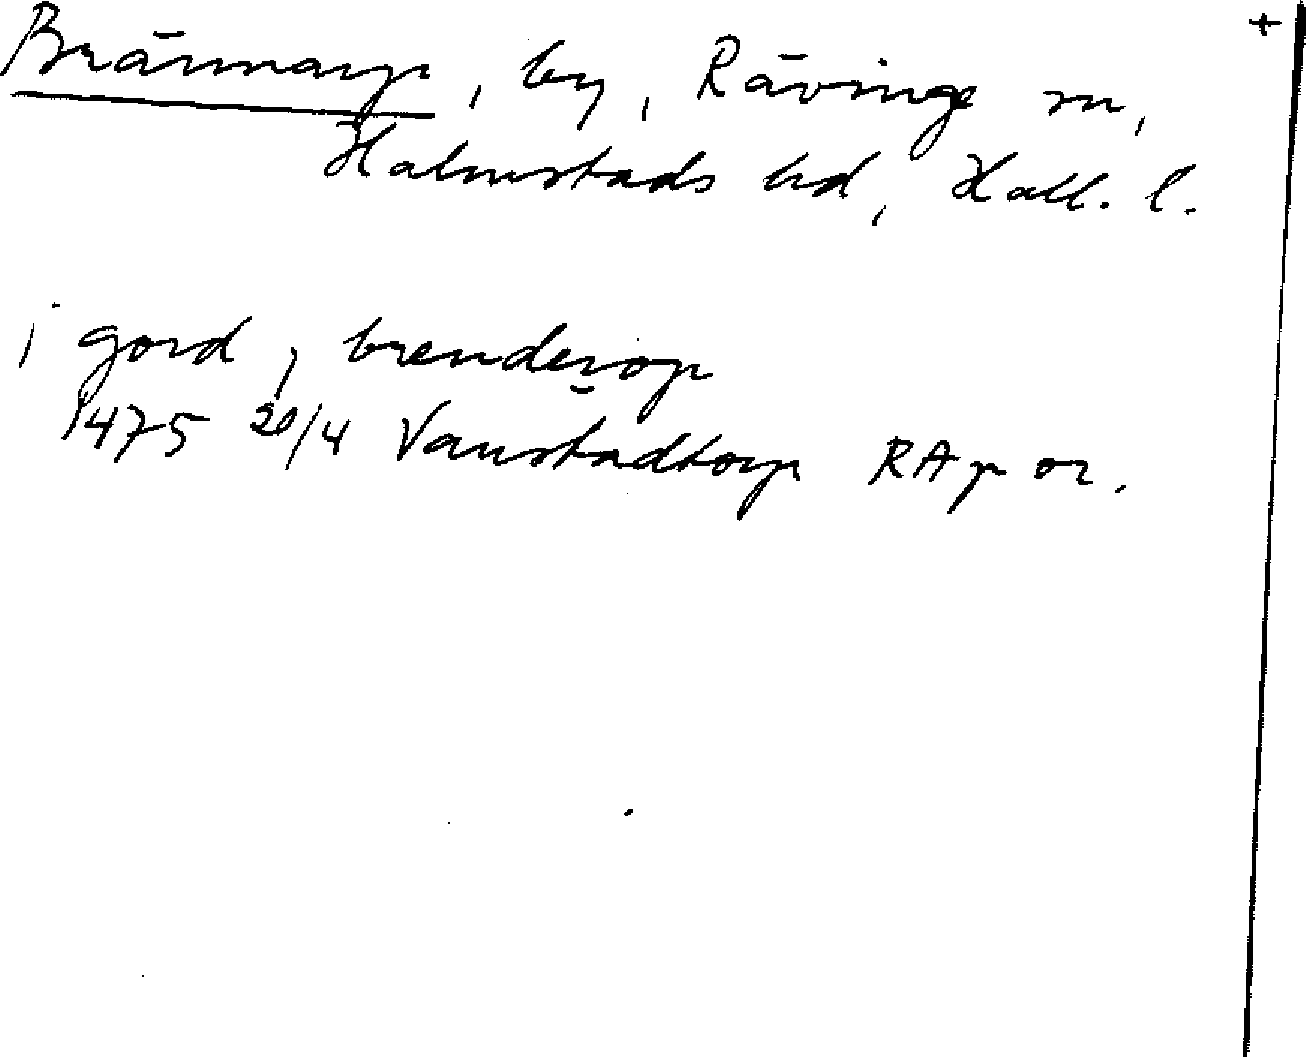 +
Brännarp, by, Rävinge sn,
Halmstads hd, Hall. l.
i gord j brenderop
1475 20/4 Vanstadtorp RA p or.